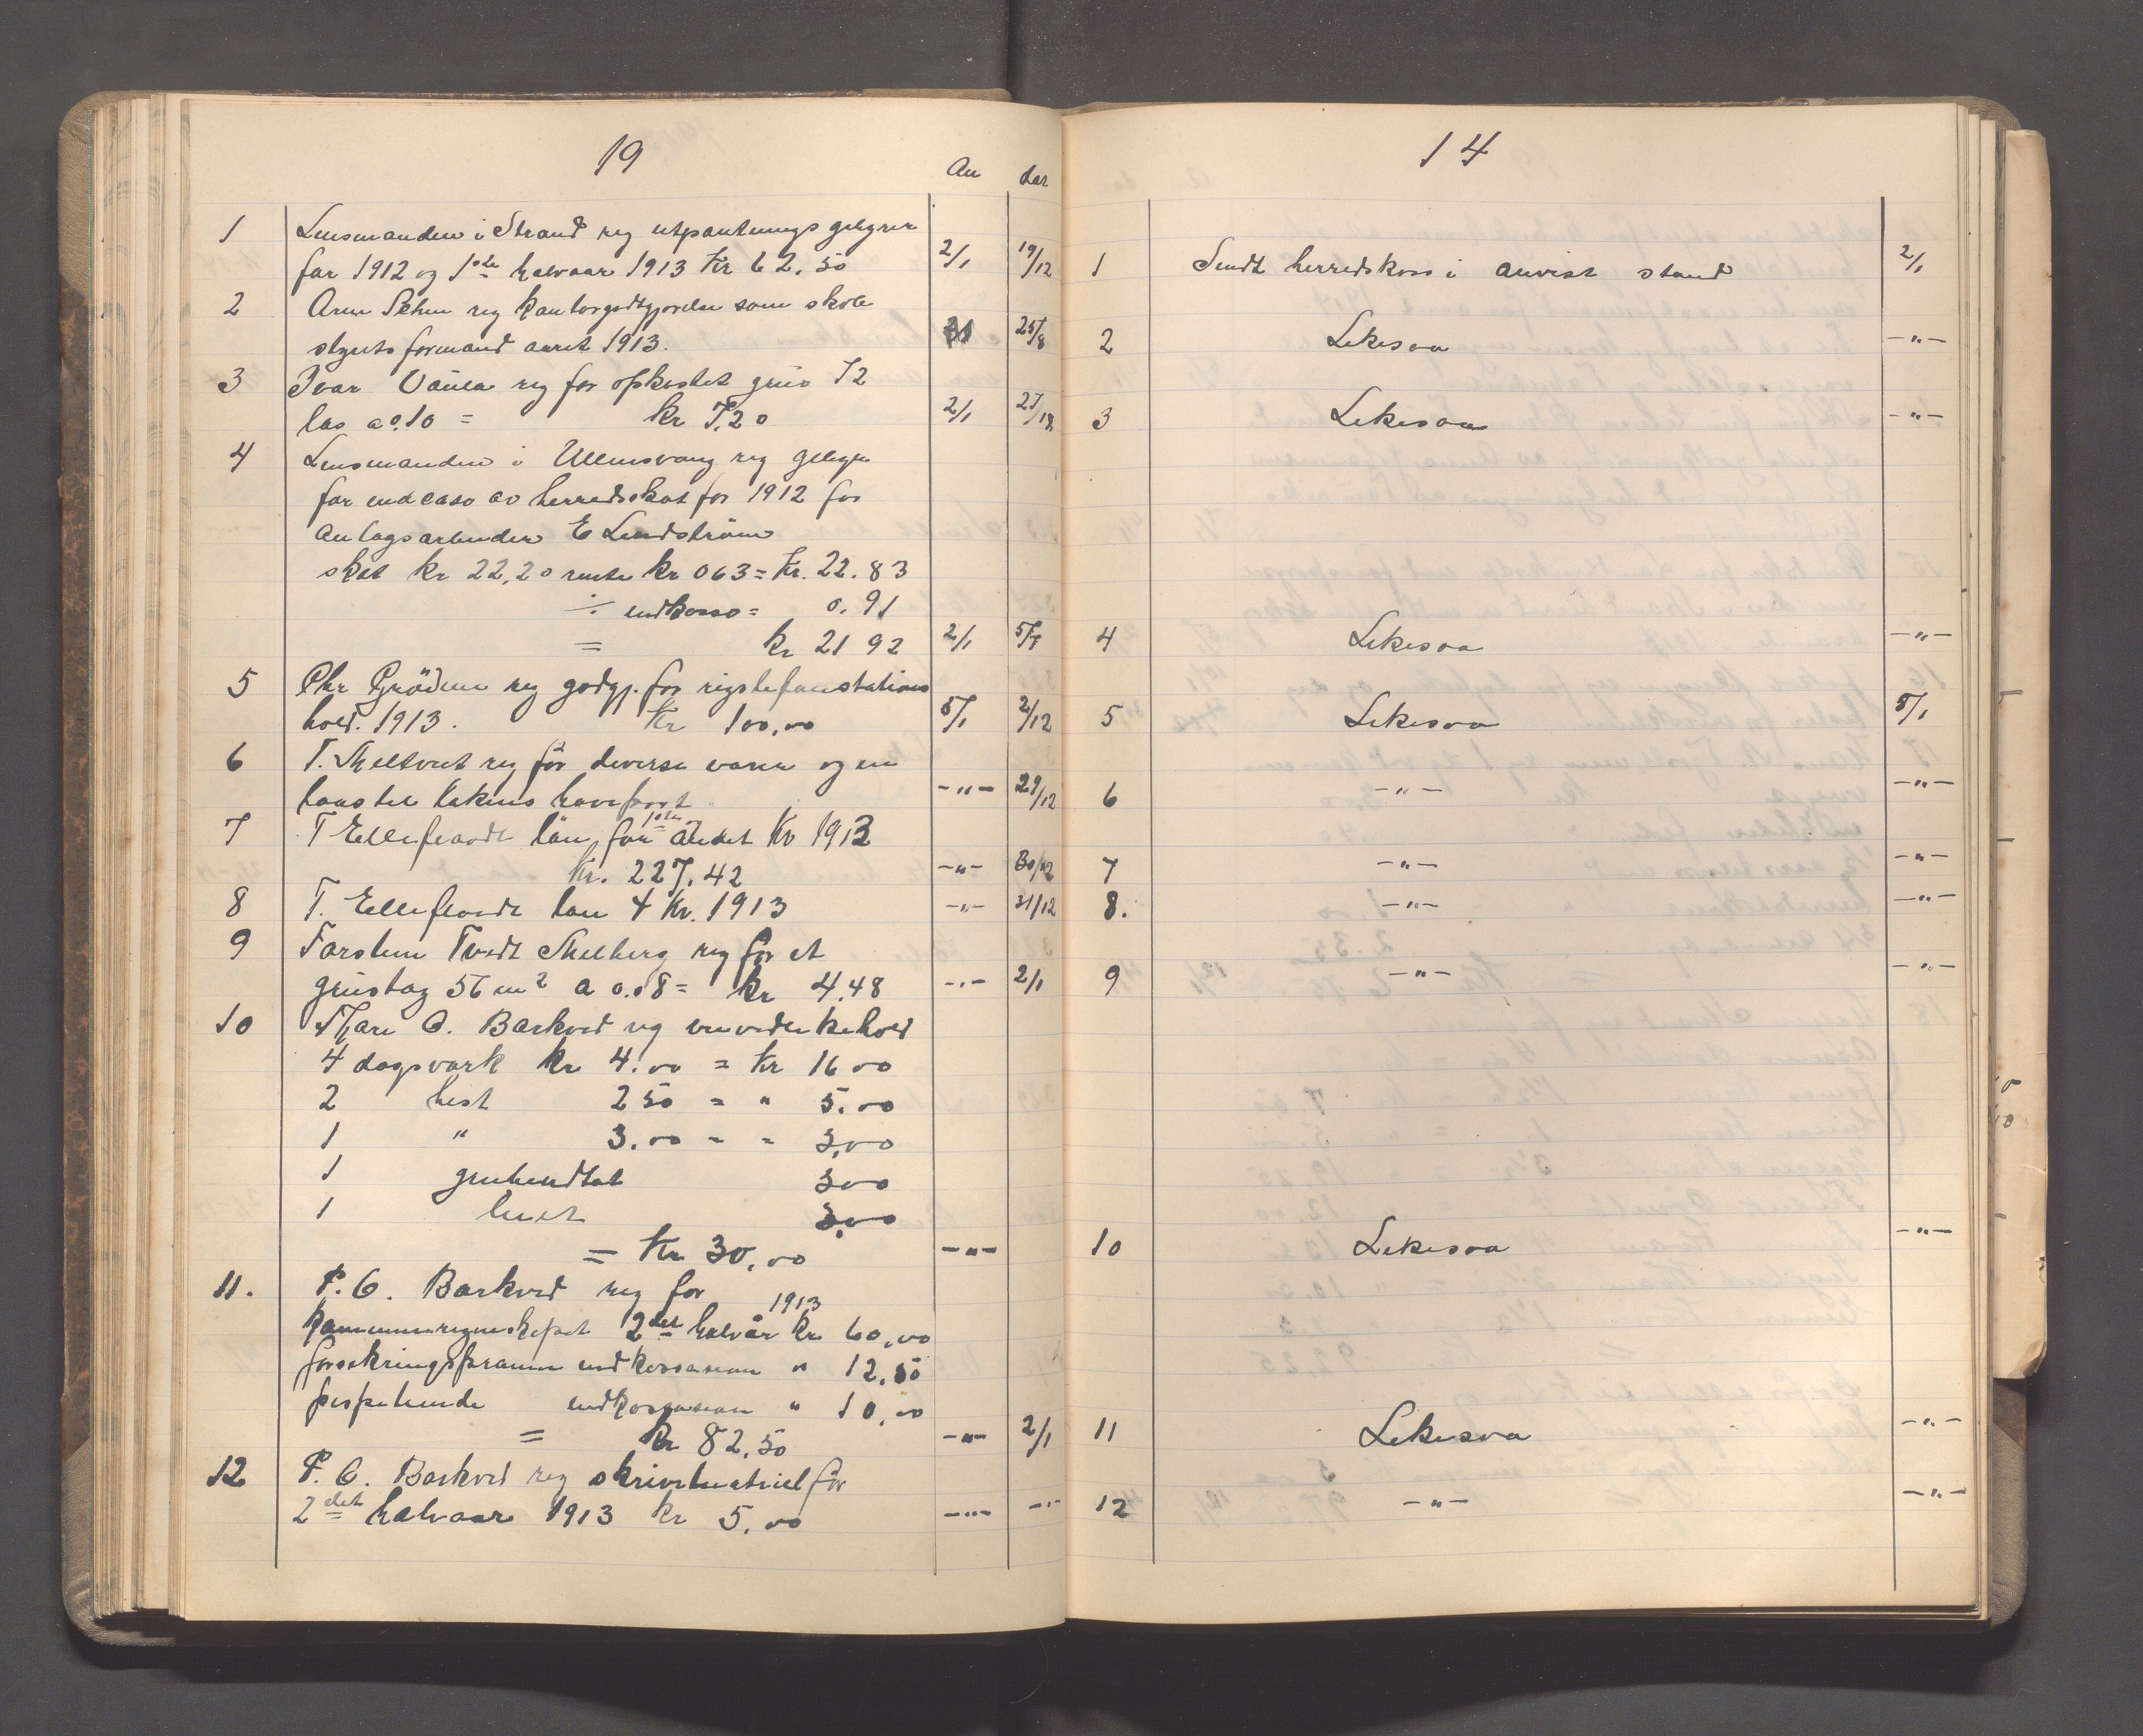 19
An dat
1 Lensmanden i Strand reg utpantningsgebyrer
for 1912 og 1ste halvaar 1913 Kr 62.50 2/1 19/12
2 Arne reg kontorgodtgjørelse som skole
styrets formand aaret 1913. 25/8
3 Ivar reg for opkostet grus 72
las a 0.10 = kr 7.20 2/1
4 Lensmanden i Ullensvang reg gebyr
for indcaso av herredsskat for 1912 for
anlagsarbeider E Lundström
skat kr 22,20 rente kr 063 = Kr. 22.83
÷ indkasso = 0.91
= kr 21 92 2/1
5 Chr Grödem reg godgj. for rigstelefonstations
hold. 1913. Kr 100,00 5/1 2/12
6 T. reg för diverse varer og en
-"- 29/12
7 T Elleflaadt lön for 1ste andet Kv 1913
Kr. 227.42 -"- 30/12
8 T. Elleflaadt løn 4 Kv. 1913 -"- 31/12
9 Torsten Tvedt reg for et
grustag 56 m2 a 0.08 = kr 4.48 -"- 2/1
10 O. Barkved reg veivedlikehold
4 dagsverk kr 4.00 = Kr 16 00
2 hest 2 50 = " 5.00
1 " 3.00 - - 3,00
1 300
1 3,00
= Kr 30,00 -"-
11. P. O. Barkved reg for
kommuneregnskapet 2det halvår 1913 kr 60,00
forsekringspræmie indkassasion " 12.50
indkassasion " 10,00
= kr 82,50 -"- 2/1
12 P. O. Barkved reg skrivematriel for
2det halvaar 1913 kr 5,00 -"- -"-
14
1 Sendt herredskass i anvist stand 2/1
2 Likesaa -"-
3 Likesaa -"-
4 Likesaa -"-
5 Likesaa 5/1
6 -"- -"-
7 -"- -"-
8. -"- -"-
9 -"- -"-
10 Likesaa -"-
11 Likesaa -"-
12 -"- -"-